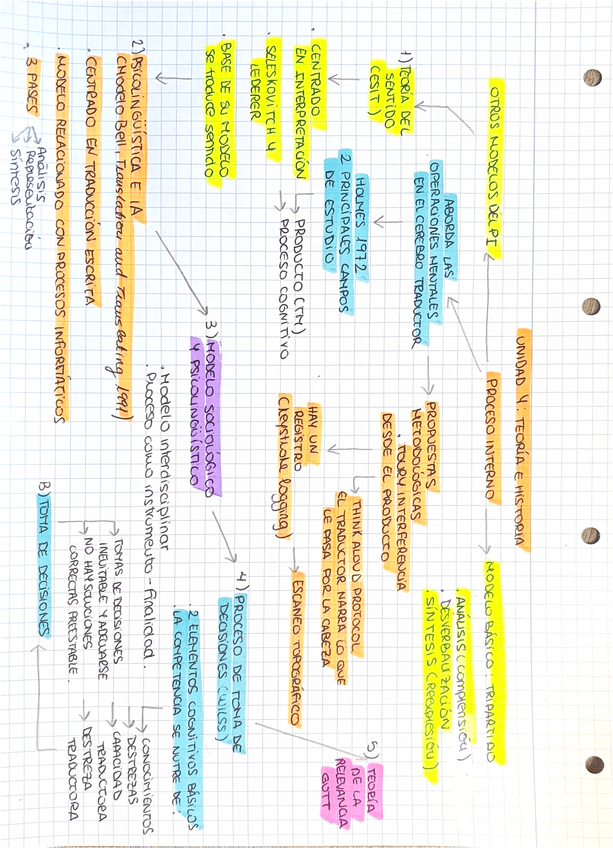 UNIDAD 4: TEORÍA E HISTORIA
OTROS MODELOS DEL PI
PROCESO INTERNO
MODELO BÁSICO: TRIPARTIDO
. ANÁLISIS (comprensión)
. DESVERBALIZACIÓN
. SÍNTESIS (Reexpresión)
ABORDA LAS
OPERACIONES MENTALES
EN EL CEREBRO TRADUCTOR
HOLMES 1972
2 PRINCIPALES CAMPOS
DE ESTUDIO
PRODUCTO (TM)
PROCESO COGNITIVO
PROPUESTAS
METODOLÓGICAS
. TOURY INTERFERENCIA
DESDE EL PRODUCTO
THINK ALOUD PROTOCOL
EL TRADUCTOR NARRA LO QUE
LE PASA POR LA CABEZA
HAY UN
REGISTRO
(keystroke logging)
ESCANEO TOPOGRÁFICO
1) TEORÍA DEL
SENTIDO
(CESIT)
. CENTRADO
EN INTERPRETACIÓN
. SELESKOVITCH Y
LEDERER
. BASE DE SU MODELO
se traduce sentido
2) PSICOLINGÜÍSTICA E IA
(Modelo Bell, Translation and Translating 1991)
. CENTRADO EN TRADUCCIÓN ESCRITA
. MODELO RELACIONADO CON PROCESOS INFORMÁTICOS
. 3 FASES
Análisis
Representación
Síntesis
3) MODELO SOCIOLÓGICO
Y PSICOLINGÜÍSTICO
. Modelo interdisciplinar
. Proceso como instrumento - finalidad.
4) PROCESO DE TOMA DE
DECISIONES (WILSS)
2 ELEMENTOS COGNITIVOS BÁSICOS
. LA COMPETENCIA SE NUTRE DE:
CONOCIMIENTOS
DESTREZAS
CAPACIDAD
TRADUCTORA
DESTREZA
TRADUCTORA
B) TOMA DE DECISIONES
TOMAS DE DECISIONES
INEVITABLE Y ADECUARSE
NO HAY SOLUCIONES
CORRECTAS PREESTABLE.
5) TEORÍA
DE LA
RELEVANCIA
GUTT